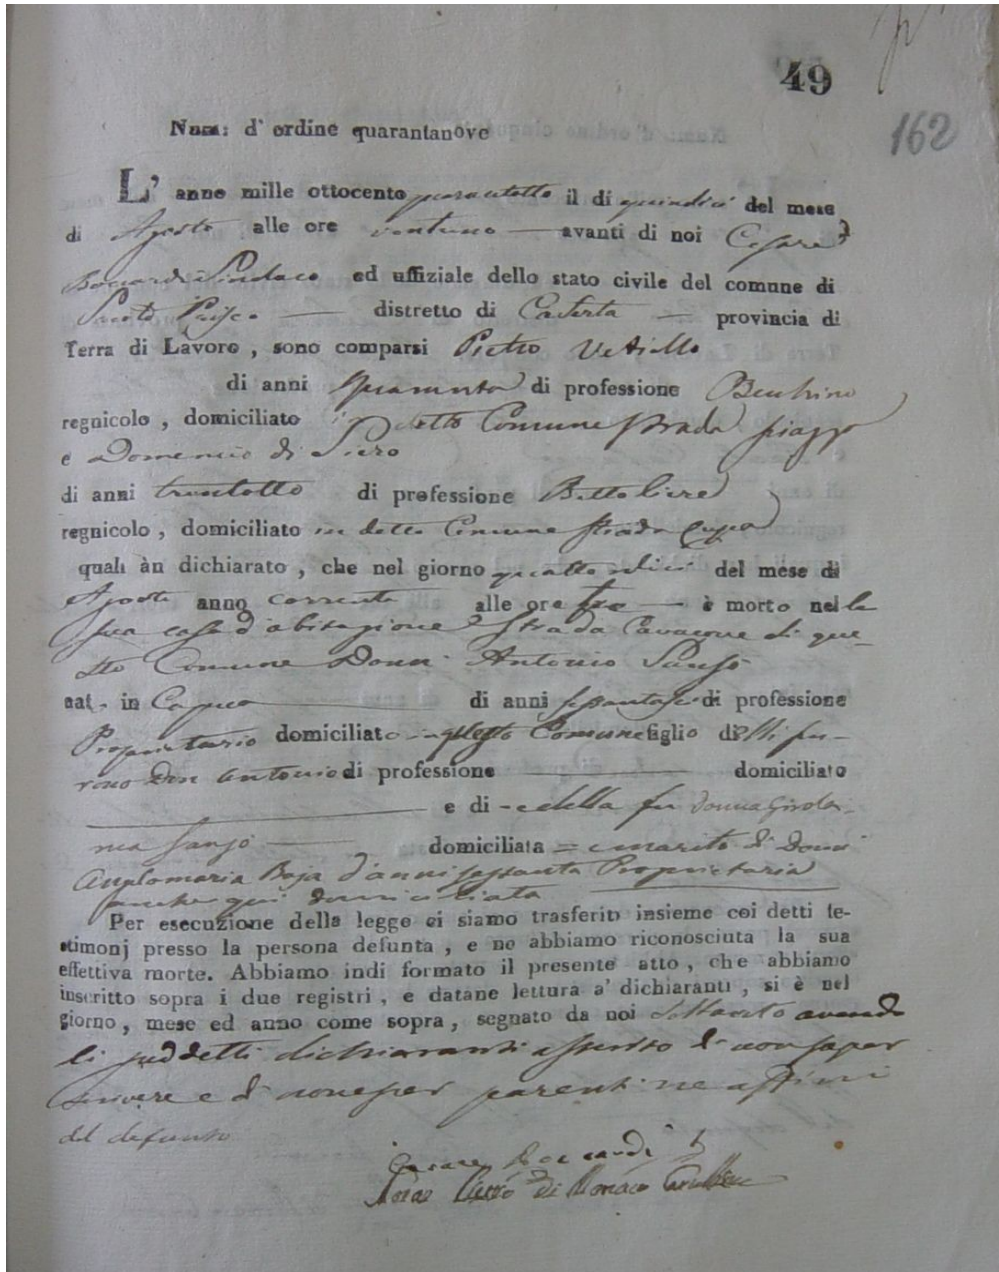 49
162
Num: d' ordine quarantanove
L' anno mille ottocento quarantotto il di quindici del mese
di Agosto alle ore ventuno avanti di noi Cesare
Boccardi Sindaco ed uffiziale dello stato civile del comune di
distretto di Caserta provincia di
Terra di Lavoro, sono comparsi Pietro Vetiello
di anni quaranta di professione
regnicolo, domiciliato detto Comune strada piazza
e Domenico di
di anni trentotto di professione Bettoliere
regnicolo, domiciliato in detto Comune strada Cupa
quali àn dichiarato, che nel giorno quattordici del mese di
Agosto anno corrente alle ore tre è morto nella
sua casa d'abitazione Strada di que-
sto Comune Don Antonio Sanzò
nat. in Capua di anni di professione
Proprietario domiciliato in questo Comune figlio delli fu-
rono Don Antonio di professione domiciliato
e di della fu donna Girola-
ma Sanzò domiciliata = marito di Donna
Angiomaria d'anni sessanta Proprietaria
anche qui domiciliata
Per esecuzione della legge ci siamo trasferiti insieme coi detti te-
stimonj presso la persona defunta, e ne abbiamo riconosciuta la sua
effettiva morte. Abbiamo indi formato il presente atto, che abbiamo
inscritto sopra i due registri, e datane lettura a' dichiaranti, si è nel
giorno, mese ed anno come sopra, segnato da noi soltanto avendo
li suddetti dichiaranti asserito di non saper
scrivere e di non esser parenti ne affini
del defunto
Cesare Boccardi
Pietro di Monaco Cancelliere